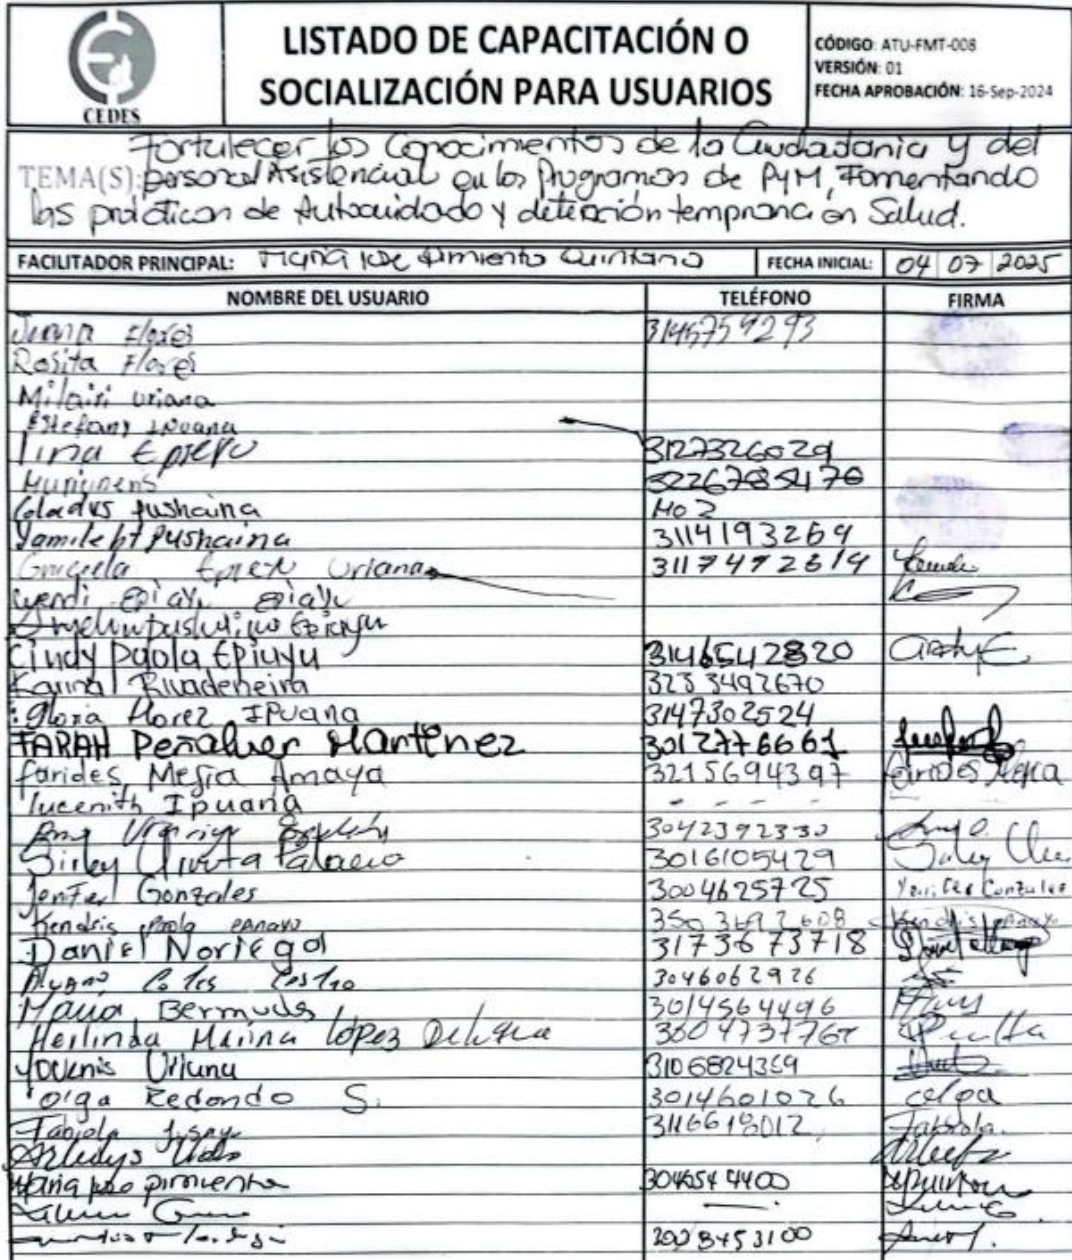 CEDES
LISTADO DE CAPACITACIÓN O
SOCIALIZACIÓN PARA USUARIOS
CÓDIGO: ATU-FMT-008
VERSIÓN: 01
FECHA APROBACIÓN: 16-Sep-2024
Fortalecer los Conocimientos de la Ciudadania y del
TEMA(S): personal Asistencial en los Programas de PYM, Fomentando
las practicas de Autocuidado y detección temprana en Salud.
FACILITADOR PRINCIPAL: Maria Jose Pimiento Quintana FECHA INICIAL: 04 07 2025
NOMBRE DEL USUARIO TELÉFONO FIRMA
Juana Flores 3145759293
Rosita Flores
Milairi uriana
Estefany Ipuana
Lina Epieyu 3127326029
32267854170
Gladys Pushaina No 2
Yamileht Pushaina 3114193269
Graciela Epieyu Uriana 3117472614
Wendi Epiayu epiayu
Epieyu
Cindy Paola Epiuyu 3146542820
Karina Rivadeneira 3233492670
Gloria Florez IPuana 3147302524
FARAH Peñalver Martinez 3012776661
farides Mejia Amaya 3215694397 Farides Mejia
lucenith Ipuana - - - -
Ana 3042392330
Sirley Oliveta Palacio 3016105429
Jenfier Gonzales 3004625725 Yenifer Gonzales
Kendris Paola epiayu 3503692608 Kendris epiayu
Daniel Noriega 3173673718
Cotes Castro 3046062926
Maria Bermudes 3014564496
Herlinda Marina López 3004737767
Yovenis Uriana 3106824359
Olga Redondo S. 3014601026 olga
Fabiola 3116618012 Fabiola.
Arledys
Maria Jose pimienta 3046544400
3008453100